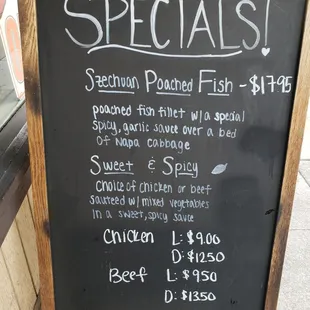 SPECIALS!
Szechuan Poached Fish - $17.95
poached fish fillet w/a special
spicy, garlic sauce over a bed
of Napa cabbage
Sweet & Spicy
Choice of chicken or beef
sauteed w/ mixed vegetables
in a sweet, spicy sauce
Chicken L: $9.00
D: $12.50
Beef L: $9.50
D: $13.50